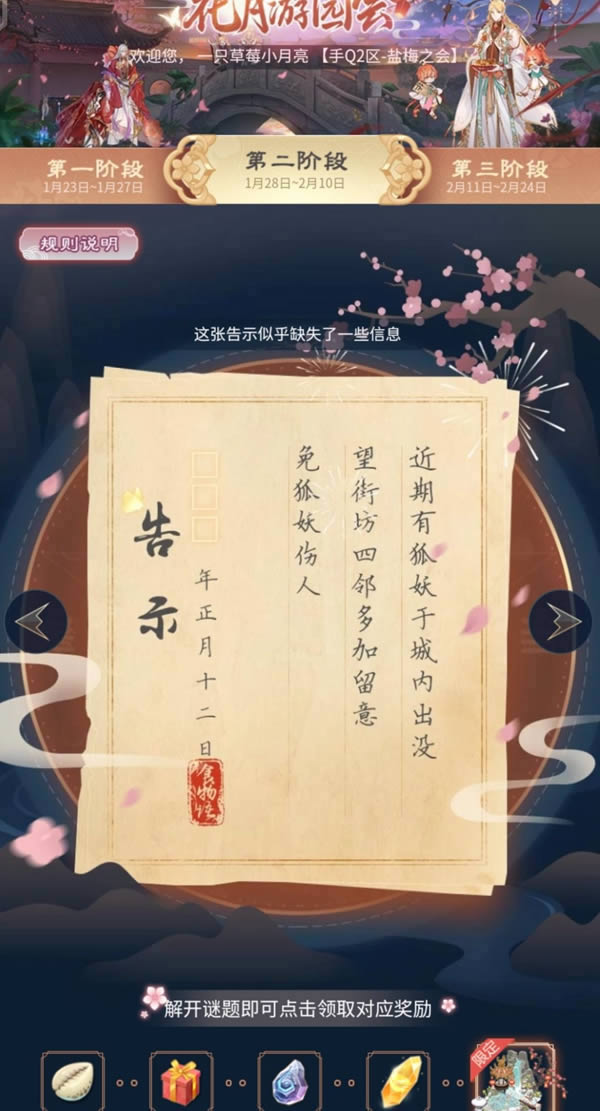 花月游园会
欢迎您，一只草莓小月亮 【手Q2区-盐梅之会】
第一阶段
1月23日~1月27日
第二阶段
1月28日~2月10日
第三阶段
2月11日~2月24日
规则说明
这张告示似乎缺失了一些信息
近期有狐妖于城内出没
望街坊四邻多加留意
免狐妖伤人
□□□年正月十二日
食物语
告示
解开谜题即可点击领取对应奖励
限定